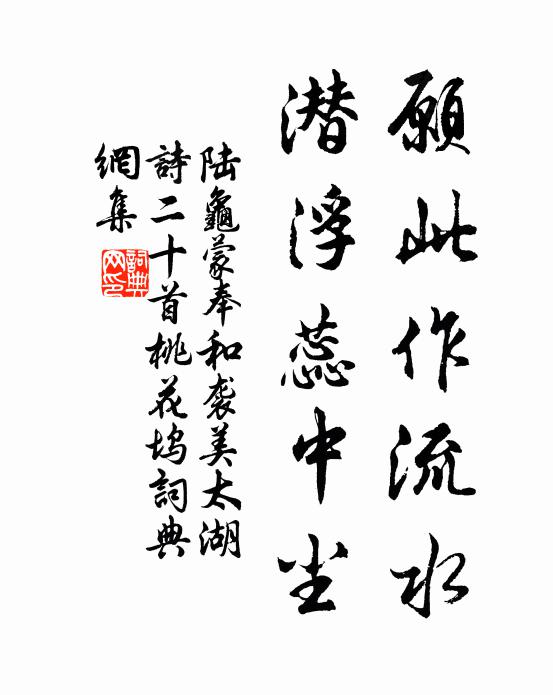 願此作流水
潛浮蕊中尘
陆龜蒙奉和袭美太湖
詩二十首桃花坞詞典
網集
詞典
网印